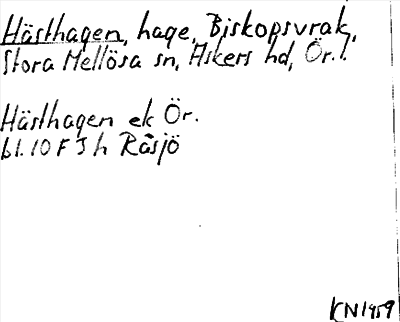 Hästhagen, hage, Biskopsvrak,
Stora Mellösa sn, Askers hd, Ör. l.
Hästhagen ek Ör.
bl. 10 F 5 h Råsjö
KN 1959